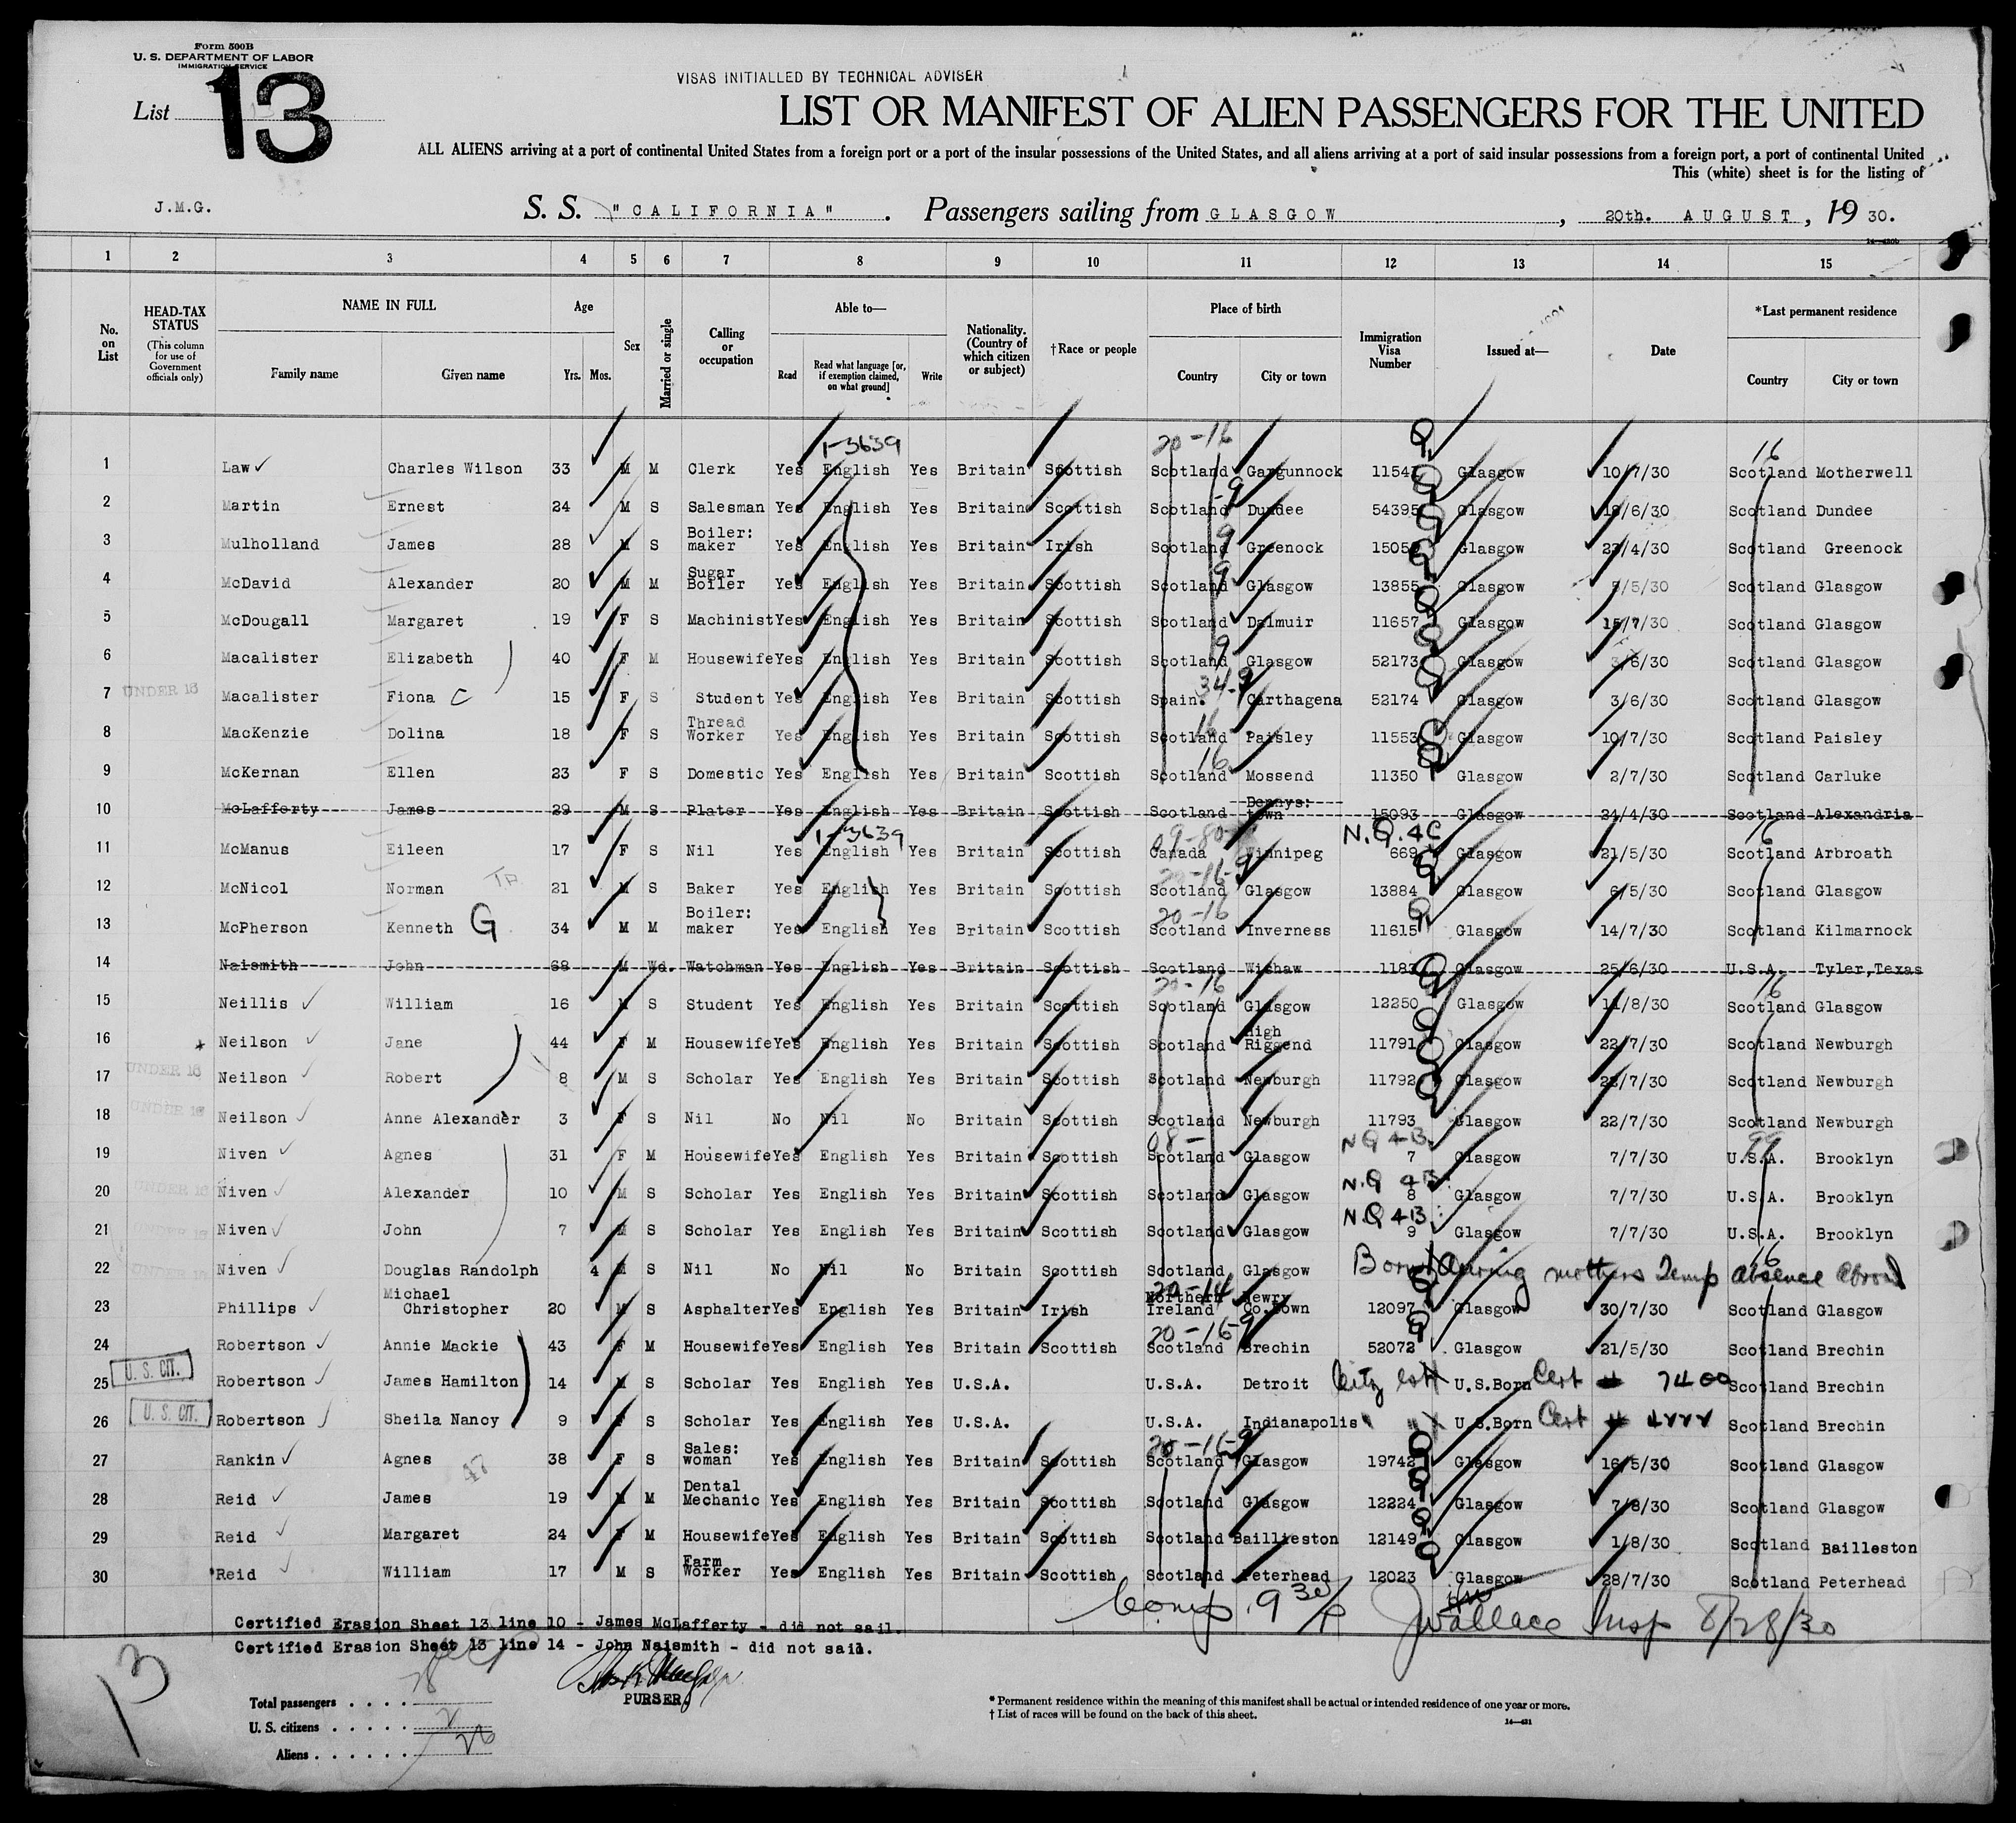 Form 500B
U. S. DEPARTMENT OF LABOR
IMMIGRATION SERVICE
List 13
VISAS INITIALLED BY TECHNICAL ADVISER
LIST OR MANIFEST OF ALIEN PASSENGERS FOR THE UNITED
ALL ALIENS arriving at a port of continental United States from a foreign port or a port of the insular possessions of the United States, and all aliens arriving at a port of said insular possessions from a foreign port, a port of continental United
This (white) sheet is for the listing of
J.M.G. S. S. "CALIFORNIA" . Passengers sailing from GLASGOW , 20th. AUGUST , 19 30.
1 2 3 4 5 6 7 8 9 10 11 12 13 14 15
No. on List
HEAD-TAX STATUS (This column for use of Government officials only)
NAME IN FULL Family name Given name
Age Yrs. Mos.
Sex
Married or single
Calling or occupation
Able to— Read Read what language [or, if exemption claimed, on what ground] Write
Nationality. (Country of which citizen or subject)
†Race or people
Place of birth Country City or town
Immigration Visa Number
Issued at—
Date
*Last permanent residence Country City or town
1-3639 20-16 16
1 Law Charles Wilson 33 M M Clerk Yes English Yes Britain Scottish Scotland Gargunnock Glasgow 10/7/30 Scotland Motherwell
2 Martin Ernest 24 M S Salesman Yes English Yes Britain Scottish Scotland Dundee 54395 Glasgow /6/30 Scotland Dundee
3 Mulholland James 28 M S Boiler: maker Yes English Yes Britain Irish Scotland Greenock Glasgow /4/30 Scotland Greenock
4 McDavid Alexander 20 M M Sugar Boiler Yes English Yes Britain Scottish Scotland Glasgow 13855 Glasgow /5/30 Scotland Glasgow
5 McDougall Margaret 19 F S Machinist Yes English Yes Britain Scottish Scotland Dalmuir 11657 Glasgow 15/7/30 Scotland Glasgow
6 Macalister Elizabeth 40 F M Housewife Yes English Yes Britain Scottish Scotland Glasgow 52173 Glasgow 3/6/30 Scotland Glasgow
7 UNDER 16 Macalister Fiona C 15 F S Student Yes English Yes Britain Scottish Spain. Carthagena 52174 Glasgow 3/6/30 Scotland Glasgow
8 MacKenzie Dolina 18 F S Thread Worker Yes English Yes Britain Scottish Scotland Paisley 11553 Glasgow 10/7/30 Scotland Paisley
9 McKernan Ellen 23 F S Domestic Yes English Yes Britain Scottish Scotland Mossend 11350 Glasgow 2/7/30 Scotland Carluke
10 McLafferty James 29 M S Plater Yes English Yes Britain Scottish Scotland Dennys: town 15093 Glasgow 24/4/30 Scotland Alexandria
1-3639 N.Q. 4C 16
11 McManus Eileen 17 F S Nil Yes English Yes Britain Scottish Canada Winnipeg 669 Glasgow 21/5/30 Scotland Arbroath
12 McNicol Norman 21 M S Baker Yes English Yes Britain Scottish Scotland Glasgow 13884 Glasgow 6/5/30 Scotland Glasgow
13 McPherson Kenneth G 34 M M Boiler: maker Yes English Yes Britain Scottish Scotland Inverness 11615 Glasgow 14/7/30 Scotland Kilmarnock
14 Naismith John 68 M Wd. Watchman Yes English Yes Britain Scottish Scotland Wishaw 1183 Glasgow 25/6/30 U.S.A. Tyler,Texas
20-16 16
15 Neillis William 16 M S Student Yes English Yes Britain Scottish Scotland Glasgow 12250 Glasgow 11/8/30 Scotland Glasgow
16 Neilson Jane 44 F M Housewife Yes English Yes Britain Scottish Scotland High Riggend 11791 Glasgow 22/7/30 Scotland Newburgh
17 UNDER 16 Neilson Robert 8 M S Scholar Yes English Yes Britain Scottish Scotland Newburgh 11792 Glasgow 22/7/30 Scotland Newburgh
18 UNDER 16 Neilson Anne Alexander 3 F S Nil No Nil No Britain Scottish Scotland Newburgh 11793 Glasgow 22/7/30 Scotland Newburgh
08- N Q 4B 99
19 Niven Agnes 31 F M Housewife Yes English Yes Britain Scottish Scotland Glasgow 7 Glasgow 7/7/30 U.S.A. Brooklyn
20 UNDER 16 Niven Alexander 10 M S Scholar Yes English Yes Britain Scottish Scotland Glasgow N.Q 4B 8 Glasgow 7/7/30 U.S.A. Brooklyn
21 UNDER 16 Niven John 7 M S Scholar Yes English Yes Britain Scottish Scotland Glasgow N.Q 4B 9 Glasgow 7/7/30 U.S.A. Brooklyn
22 UNDER 16 Niven Douglas Randolph 4 M S Nil No Nil No Britain Scottish Scotland Glasgow Born during mothers Temp absence abroad
23 Phillips Michael Christopher 20 M S Asphalter Yes English Yes Britain Irish Northern Ireland Newry Co.Down 12097 Glasgow 30/7/30 Scotland Glasgow
20-16-9
24 Robertson Annie Mackie 43 F M Housewife Yes English Yes Britain Scottish Scotland Brechin 52072 Glasgow 21/5/30 Scotland Brechin
25 U. S. CIT. Robertson James Hamilton 14 M S Scholar Yes English Yes U.S.A. U.S.A. Detroit U.S.Born Cert # 7400 Scotland Brechin
26 U. S. CIT. Robertson Sheila Nancy 9 F S Scholar Yes English Yes U.S.A. U.S.A. Indianapolis U.S.Born Cert # Scotland Brechin
20-16-9
27 Rankin Agnes 38 F S Sales: woman Yes English Yes Britain Scottish Scotland Glasgow 19742 Glasgow 16/5/30 Scotland Glasgow
28 Reid James 19 M M Dental Mechanic Yes English Yes Britain Scottish Scotland Glasgow 12224 Glasgow 7/8/30 Scotland Glasgow
29 Reid Margaret 24 F M Housewife Yes English Yes Britain Scottish Scotland Baillieston 12149 Glasgow 1/8/30 Scotland Bailleston
30 Reid William 17 M S Farm Worker Yes English Yes Britain Scottish Scotland Peterhead 12023 Glasgow 28/7/30 Scotland Peterhead
Comp. 9 30/P JWallace Insp 8/28/30
Certified Erasion Sheet 13 line 10 - James McLafferty - did not sail.
Certified Erasion Sheet 13 line 14 - John Naismith - did not sail.
PURSER.
13
Total passengers . . . . 28
U. S. citizens . . . . . 2
Aliens . . . . . . 26
* Permanent residence within the meaning of this manifest shall be actual or intended residence of one year or more.
† List of races will be found on the back of this sheet.